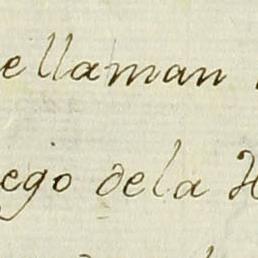 ellaman
ego dela H